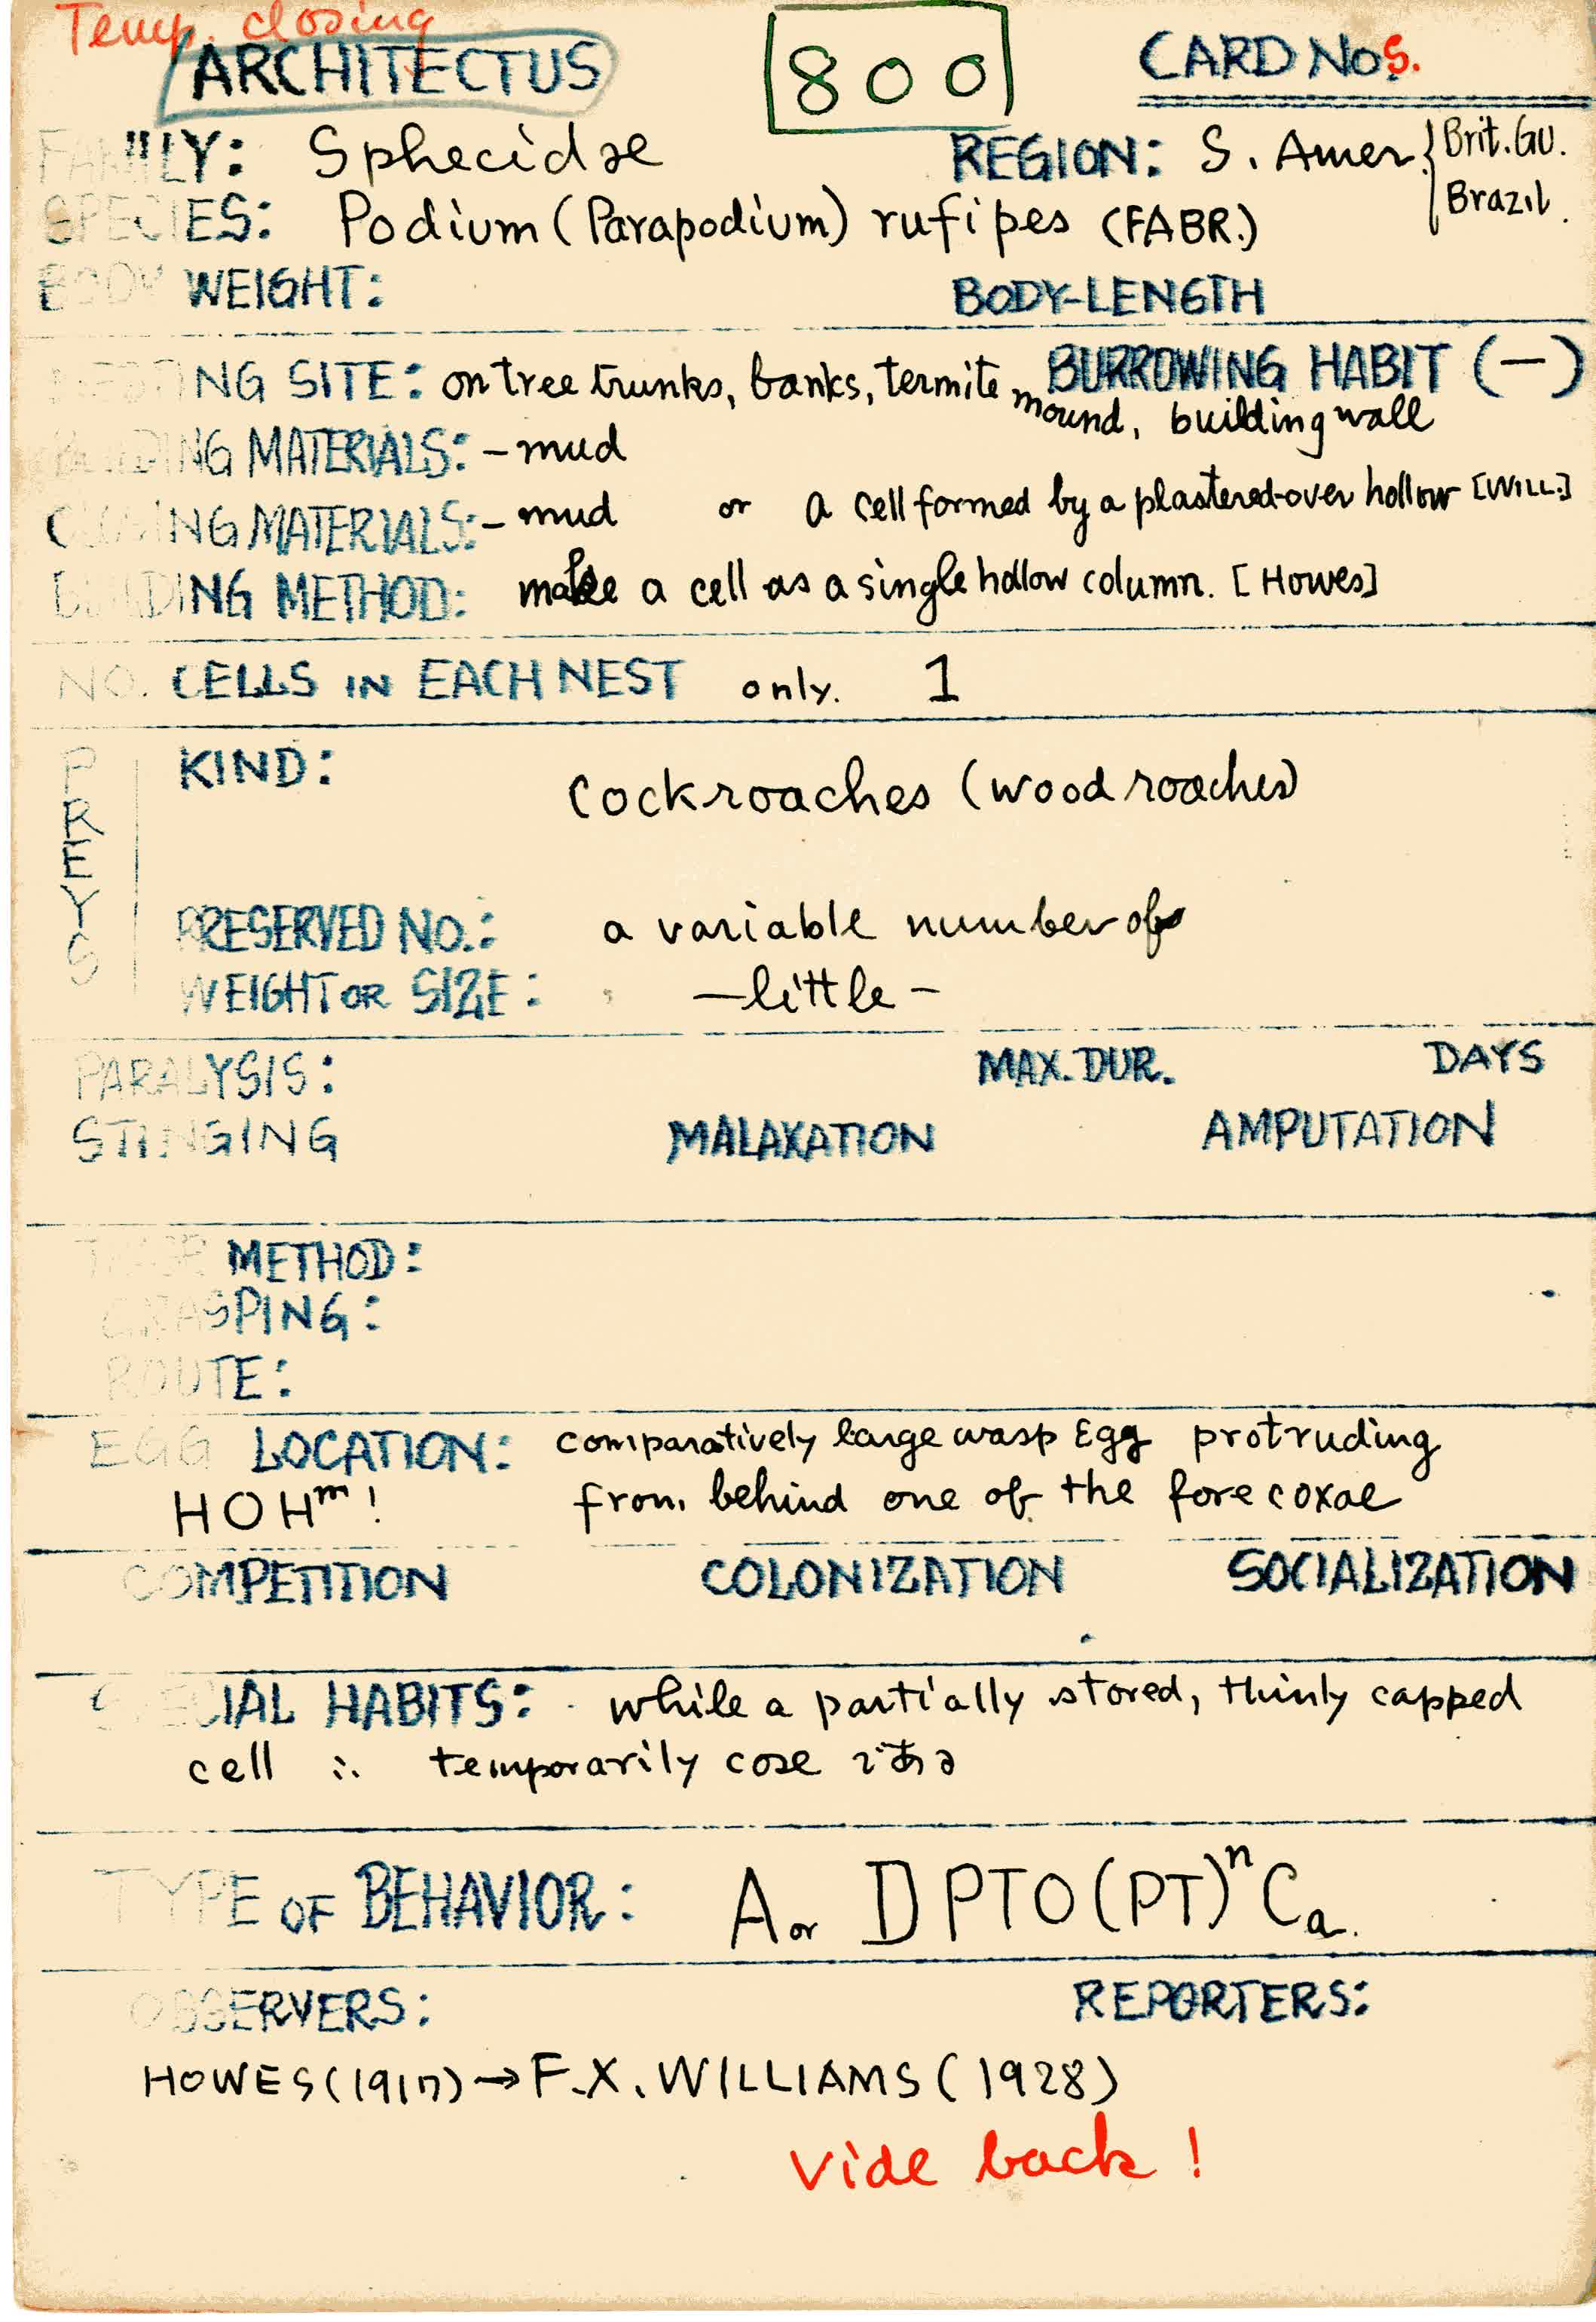 Temp. closing
ARCHITECTUS 800 CARD NOS.
FAMILY: Sphecidae REGION: S. Amer. { Brit. Gu.
Brazil.
SPECIES: Podium (Parapodium) rufipes (FABR.)
BODY WEIGHT: BODY-LENGTH
NESTING SITE: on tree trunks, banks, termite mound, building wall BURROWING HABIT (—)
BUILDING MATERIALS: - mud
CLOSING MATERIALS: - mud or a cell formed by a plastered-over hollow [WILL.]
BUILDING METHOD: make a cell as a single hollow column. [Howes]
NO. CELLS IN EACH NEST only. 1
PREYS
KIND: Cockroaches (wood roaches)
PRESERVED NO.: a variable number of
WEIGHT OR SIZE: —little—
PARALYSIS: MAX. DUR. DAYS
STINGING MALAXATION AMPUTATION
METHOD:
GRASPING:
ROUTE:
EGG LOCATION: comparatively large wasp Egg protruding
HOHᵐ! from behind one of the fore coxae
COMPETITION COLONIZATION SOCIALIZATION
SPECIAL HABITS: while a partially stored, thinly capped
cell ∴ temporarily cose
TYPE OF BEHAVIOR: A or DPTO(PT)ⁿCa.
OBSERVERS: REPORTERS:
HOWES (1917) → F.X. WILLIAMS (1928)
Vide back!